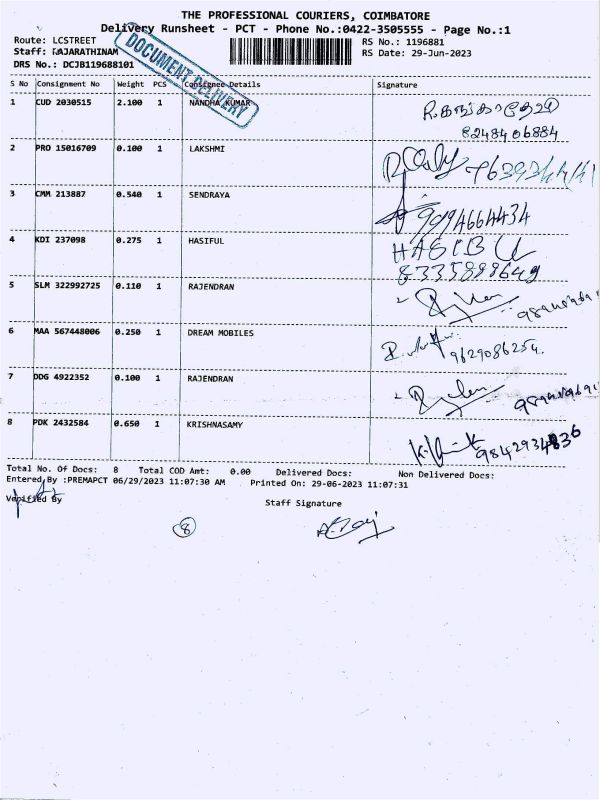 THE PROFESSIONAL COURIERS, COIMBATORE
Delivery Runsheet - PCT - Phone No.:0422-3505555 - Page No.:1
Route: LCSTREET
RS No.: 1196881
Staff: RAJARATHINAM
RS Date: 29-Jun-2023
DRS No.: DCJB119688101
DOCUMENT DELIVERY
S No Consignment No Weight PCS Consignee Details Signature
1 CUD 2030515 2.100 1 NANDHA KUMAR
8248406884
2 PRO 15016709 0.100 1 LAKSHMI
3 CMM 213887 0.540 1 SENDRAYA
9994664434
4 KDI 237098 0.275 1 HASIFUL
8335899649
5 SLM 322992725 0.110 1 RAJENDRAN
6 MAA 567448006 0.250 1 DREAM MOBILES
9629086254.
7 DDG 4922352 0.100 1 RAJENDRAN
8 PDK 2432584 0.650 1 KRISHNASAMY
Total No. Of Docs: 8 Total COD Amt: 0.00 Delivered Docs: Non Delivered Docs:
Entered By :PREMAPCT 06/29/2023 11:07:30 AM Printed On: 29-06-2023 11:07:31
Verified By
Staff Signature
8